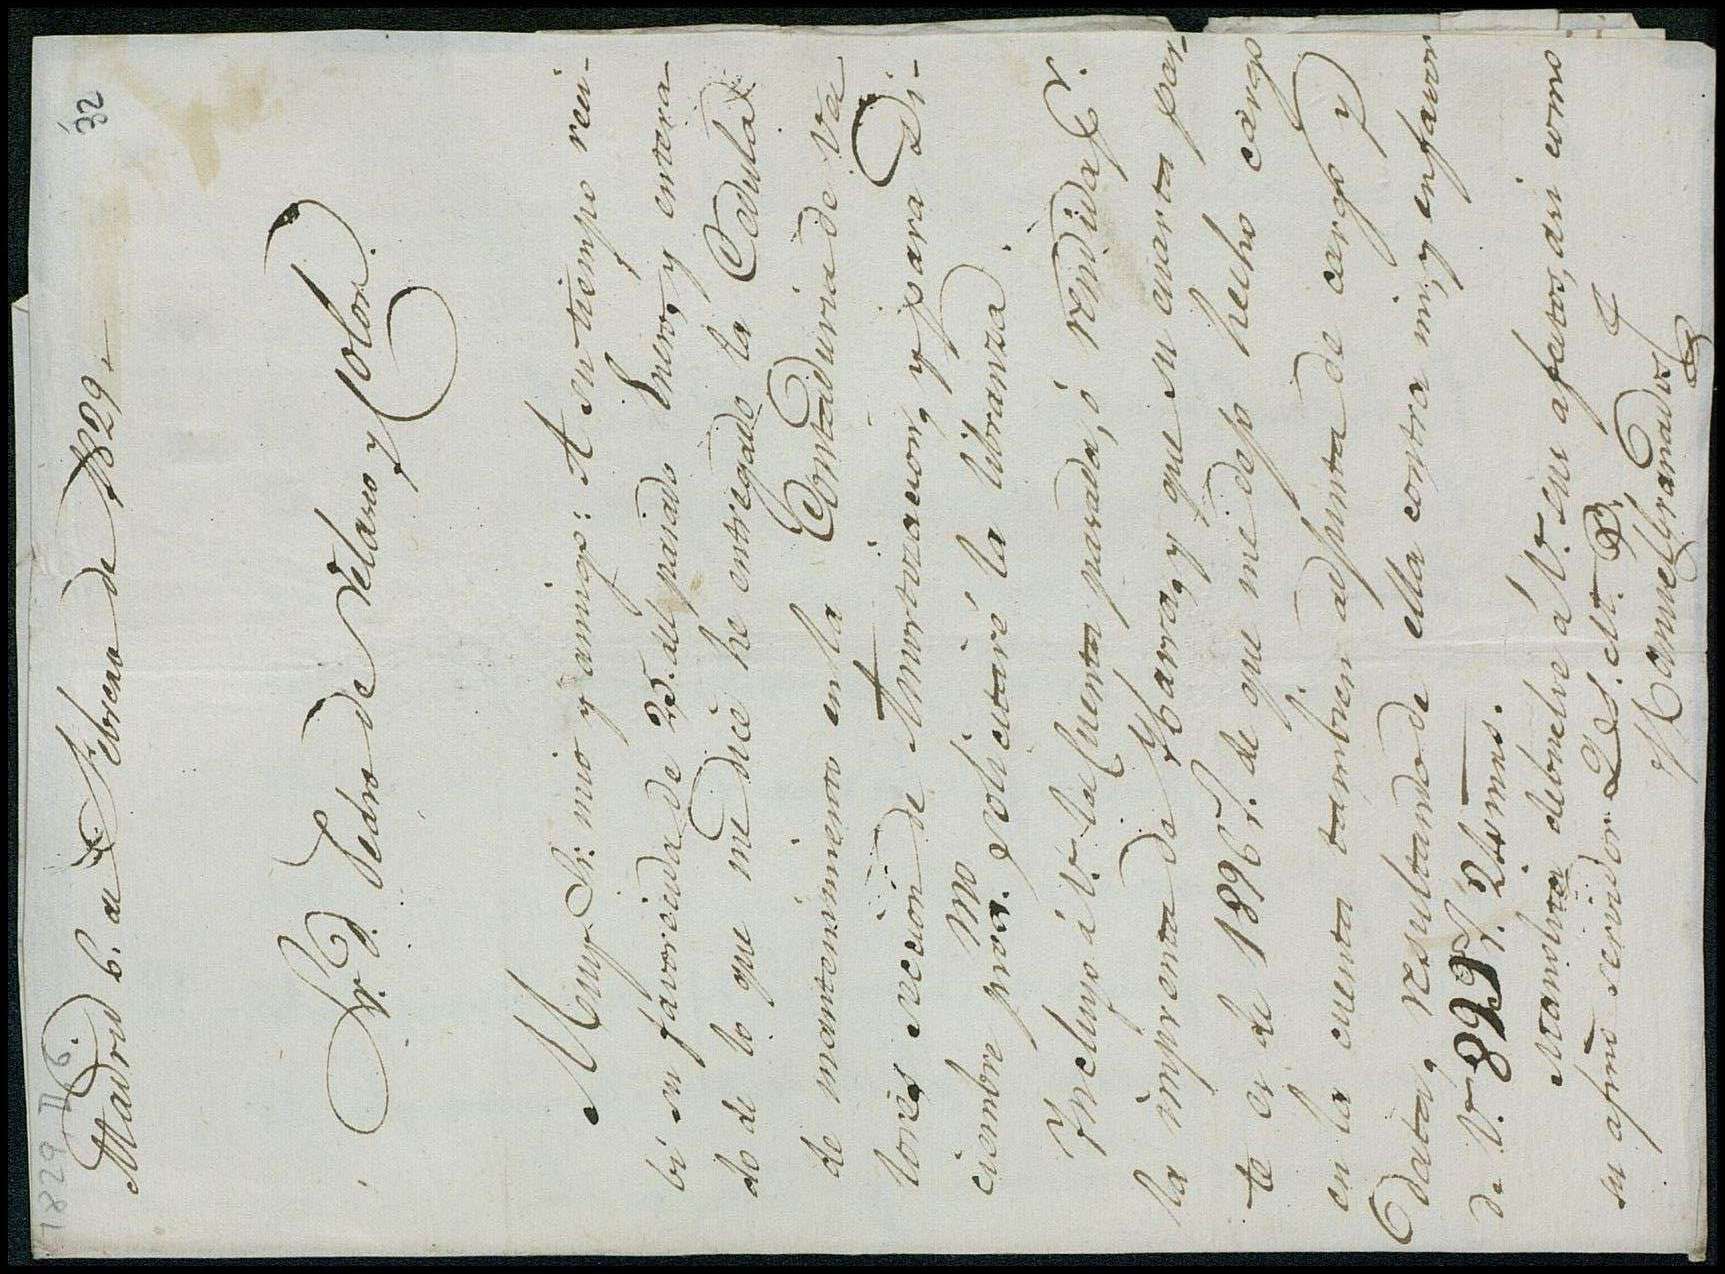 1829-II-6.
32
Madrid 6. de Febrero de 1829.
Sr. D. Pedro de Velasco y Colon.
Muy Sr. mio y amigo: A su tiempo reci-
bí su favorecida de 2d. del pasado Enero, y entera-
do de lo que me dice he entregado la Cedula
de mantenimiento en la Contaduria de Va
lores seccion de Amortizacion, y para Di-
ciembre proxmo. solicitaré la libranza.
Incluyo á V. la Cuenta pasada, ó rendida
la imprenta de Ybarra, y que su cuarta par-
te es de 1896 r. de que me dejo hecho cargo
en la cuenta tambien adjunta de cargo y
data, resultando de ella contra mi, y en favor
de V. 8998 r. 24 mrs.
Manolita debuelve á V. sus afectos, asi como
su afmo servidor Q. S. M. B.
Manuel Granados